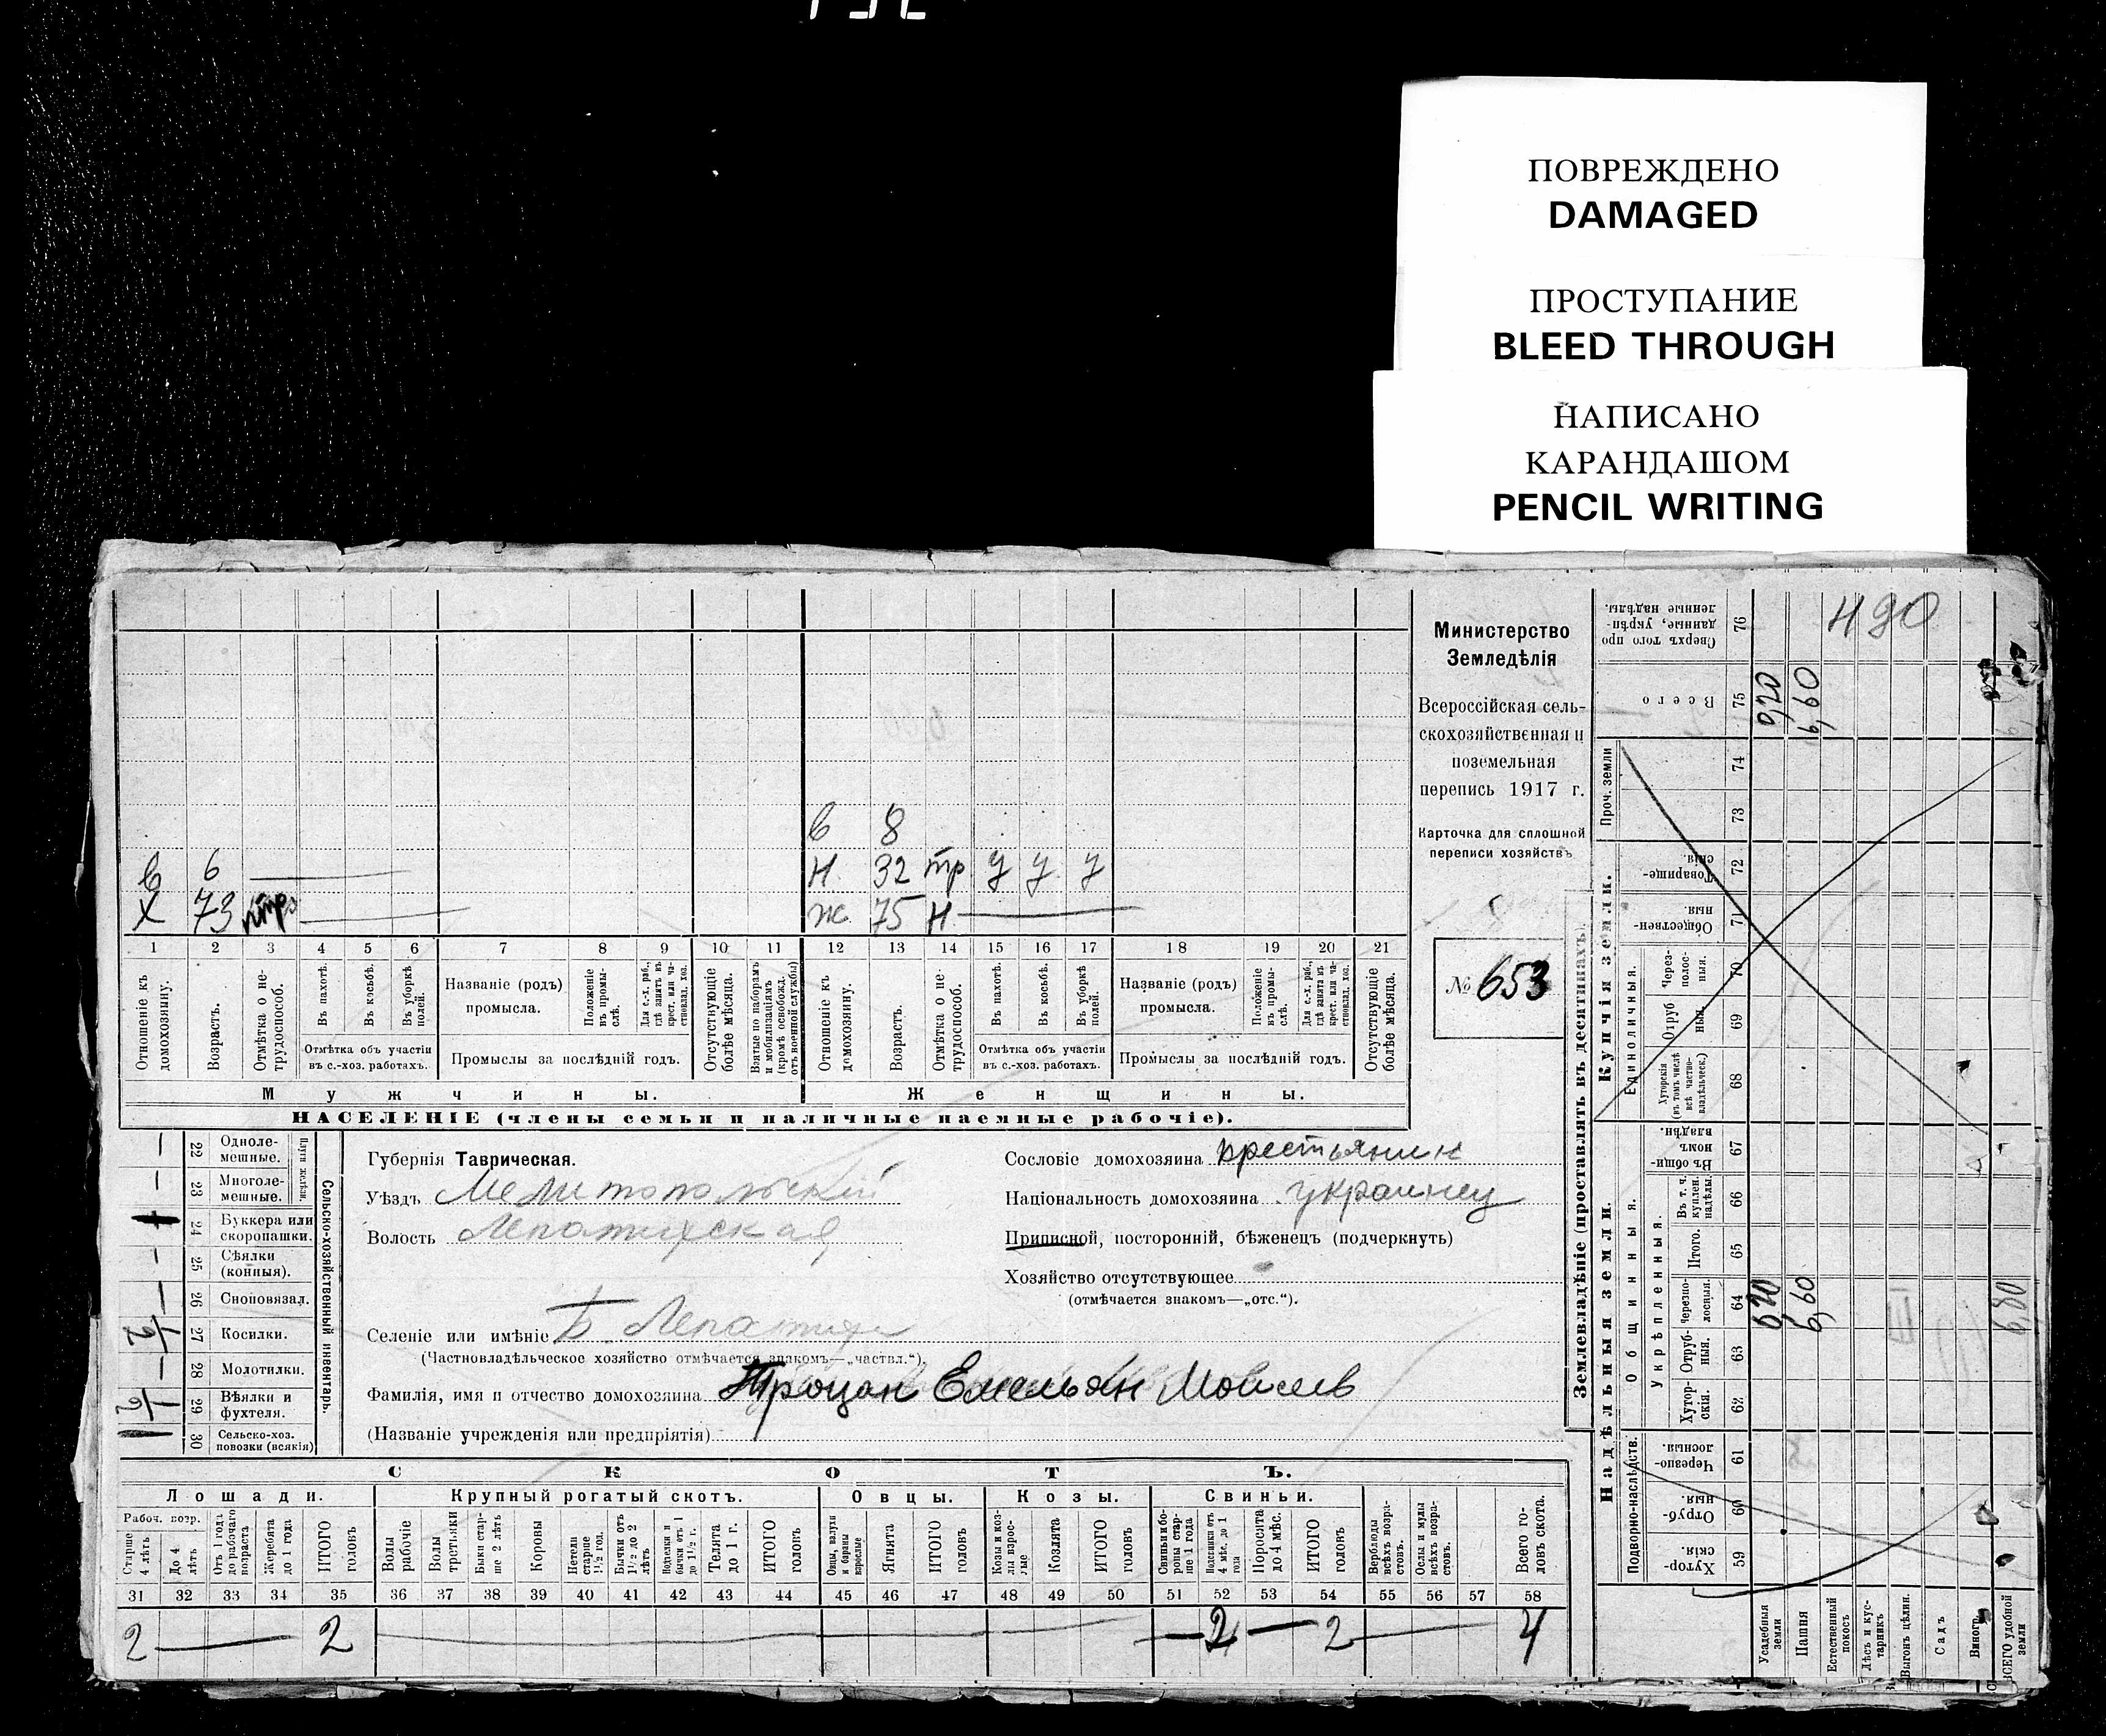 ПОВРЕЖДЕНО
DAMAGED
ПРОСТУПАНИЕ
BLEED THROUGH
НАПИСАНО
КАРАНДАШОМ
PENCIL WRITING
Министерство
Земледѣлія
Всероссійская сель-
скохозяйственная и
поземельная
перепись 1917 г.
Карточка для сплошной
переписи хозяйствъ
№ 653
в 8
в 6
Н 32 тр у у у
Х 73
ж 75 Н
1 2 3 4 5 6 7 8 9 10 11 12 13 14 15 16 17 18 19 20 21
Отношеніе къ домохозяину.
Возрастъ.
Отмѣтка о не-трудоспособ.
Въ пахотѣ.
Въ косьбѣ.
Въ уборкѣ полей.
Отмѣтка объ участіи
въ с.-хоз. работахъ.
Названіе (родъ)
промысла.
Положеніе въ промы-слѣ.
Для с.-х. раб., гдѣ занятъ въ крест. или ча-стновлад. хоз.
Промыслы за послѣдній годъ.
Отсутствующіе болѣе мѣсяца.
Взятые по наборамъ и мобилизаціямъ (кромѣ освобожд. отъ военной службы)
Отношеніе къ домохозяину.
Возрастъ.
Отмѣтка о не-трудоспособ.
Въ пахотѣ.
Въ косьбѣ.
Въ уборкѣ полей.
Отмѣтка объ участіи
въ с.-хоз. работахъ.
Названіе (родъ)
промысла.
Положеніе въ промы-слѣ.
Для с.-х. раб., гдѣ занята въ крест. или ча-стновлад. хоз.
Промыслы за послѣдній годъ.
Отсутствующіе болѣе мѣсяца.
Мужчины.
Женщины.
НАСЕЛЕНІЕ (члены семьи и наличные наемные рабочіе).
Сельско-хозяйственный инвентарь.
22 Одноле-мешные.
23 Многоле-мешные.
24 Буккера или скоропашки.
25 Сѣялки (конныя).
26 Сноповязал.
1/2 27 Косилки.
28 Молотилки.
1/2 29 Вѣялки и фухтеля.
1 30 Сельско-хоз. повозки (всякія)
Губернія Таврическая.
Уѣздъ Мелитопольскій
Волость Лепатихская
Селеніе или имѣніе Б Лепатиха
(Частновладѣльческое хозяйство отмѣчается знакомъ—„частвл.“).
Фамилія, имя и отчество домохозяина Процан Емельян Моисеев
(Названіе учрежденія или предпріятія)
Сословіе домохозяина крестьянин
Національность домохозяина украинец
Приписной, посторонній, бѣженецъ (подчеркнуть)
Хозяйство отсутствующее
(отмѣчается знакомъ—„отс.“).
СКОТЪ.
Лошади.
Крупный рогатый скотъ.
Овцы.
Козы.
Свиньи.
Рабоч. возр.
Старше 4 лѣтъ
До 4 лѣтъ
Отъ 1 года до рабочаго возраста
Жеребята до 1 года
ИТОГО головъ
Волы рабочіе
Волы третьяки
Быки стар-ше 2 лѣтъ
Коровы
Нетели старше 1½ год.
Бычки отъ 1½ до 2 лѣтъ
Телята до 1 г.
ИТОГО головъ
Ягнята
ИТОГО головъ
Козы и коз-лы взрос-лые
Козлята
ИТОГО головъ
Поросята до 4 мѣс.
ИТОГО головъ
Верблюды всѣхъ возра-стовъ.
Ослы и мулы всѣхъ возра-стовъ.
Всего го-ловъ скота.
31 32 33 34 35 36 37 38 39 40 41 42 43 44 45 46 47 48 49 50 51 52 53 54 55 56 57 58
2 2 2 2 4
Землевладѣніе (проставлять въ десятинахъ).
Надѣльныя земли.
Купчія земли.
Подворно-наслѣдств.
Общинныя.
Укрѣпленныя.
Единоличныя.
Проч. земли
59 Хутор-скія.
60 Отруб-ныя.
61 Черезпо-лосныя.
62 Хутор-скія.
63 Отруб-ныя.
64 Черезпо-лосныя.
65 Итого.
66 Въ т. ч. куплен. надѣлы.
67 Въ общи-нномъ владѣн.
68 Хуторскія (въ томъ числѣ всѣ частно-владѣльческ.)
69 Отруб ныя.
70 Через-полос-ныя.
71 Обществен-ныя
72 Товарище-скія.
73
74
75 Всего
76 Сверхъ того про данные, укрѣп-ленные надѣлы.
Усадебныя земли
Пашня
Естественный покосъ
Лѣсъ и кус-тарникъ
Выгонъ цѣлин.
Садъ
Виногр.
ВСЕГО удобной земли
0,20 0,20
6,60 6,60
680
490